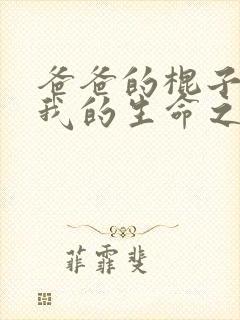 爸爸的棍子
我的生命之
菲霏斐